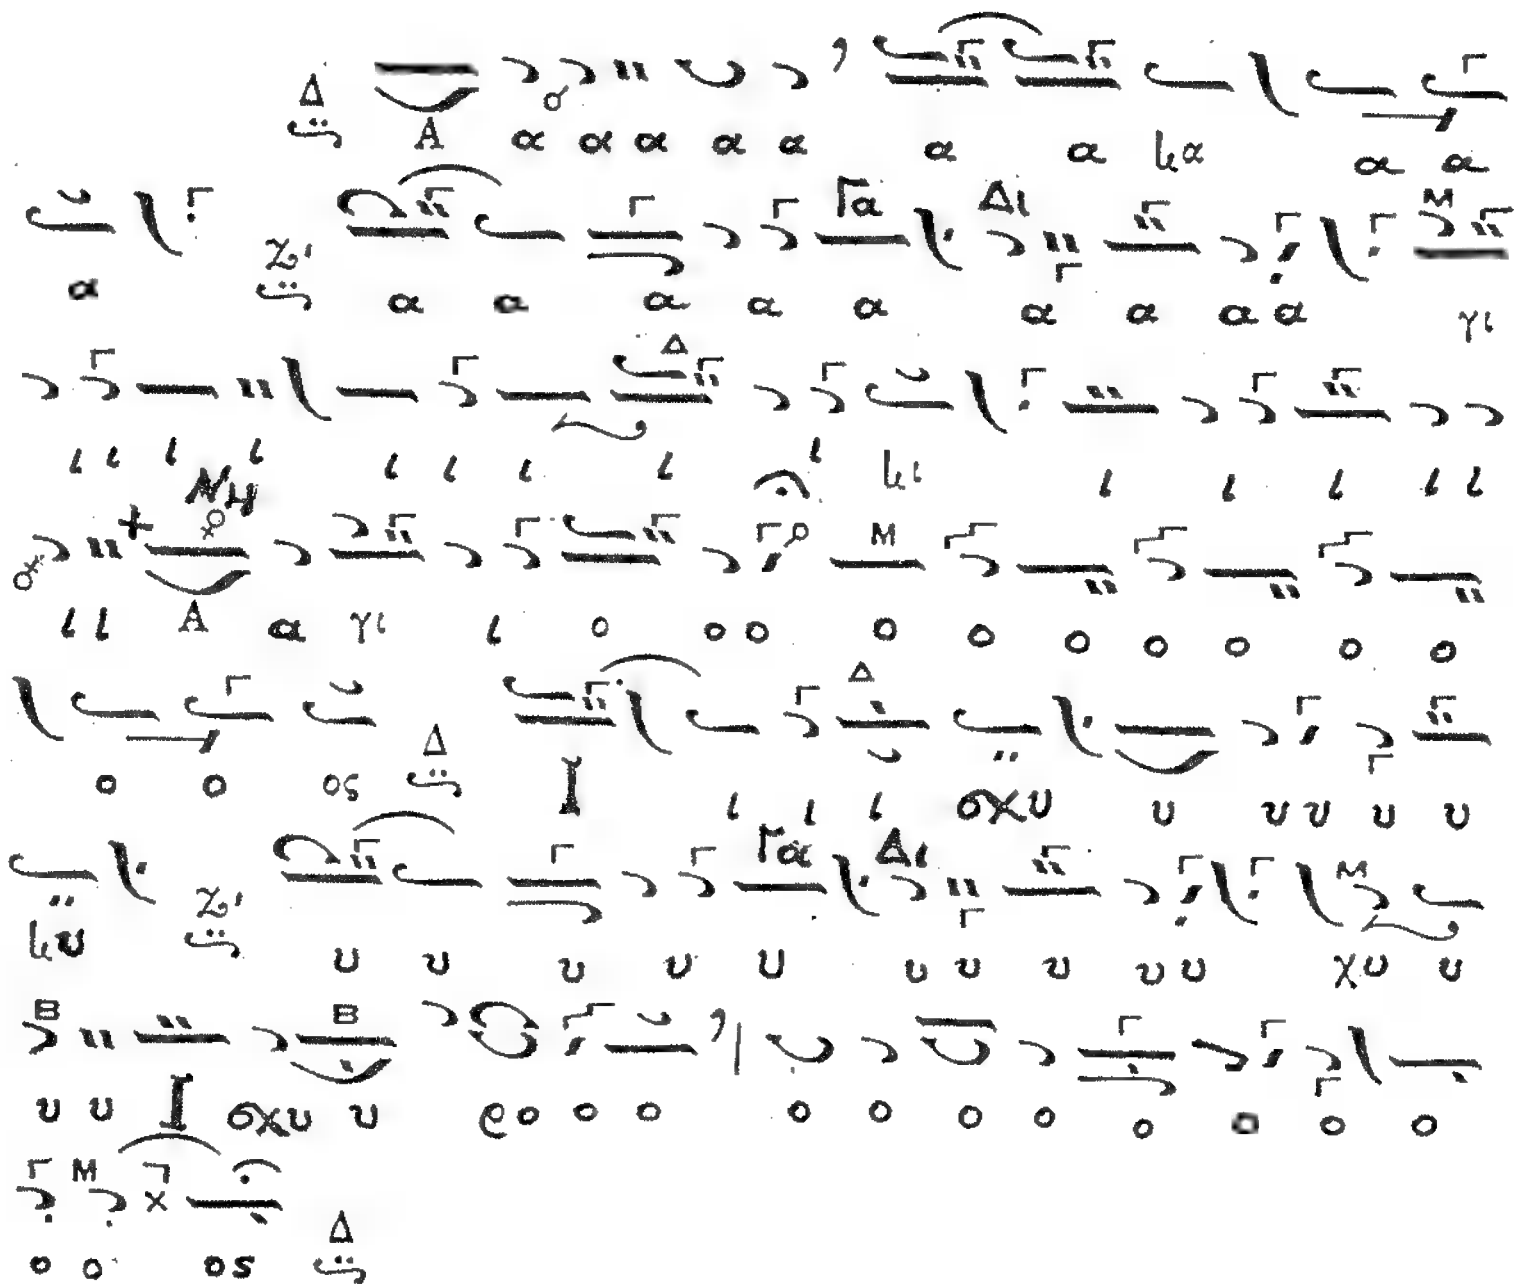 Δ Α α α α α α α α α α
Γα Δι Μ
α Ζ΄ α α α α α α α α α γι
Δ
ι ι ι ι ι ι ι ι ι ι ι ι ι ι
Νη Μ
ι ι Α α γι ι ο ο ο ο ο ο ο ο ο ο
Δ
ο ο ος Δ Ι ι ι ι σχυ υ υ υ υ υ
Γα Δι Μ
Ζ΄ υ υ υ υ υ υ υ υ υ υ χυ υ
Β Β
υ υ Ι σχυ υ ρο ο ο ο ο ο ο ο ο ο ο
Μ
ο ο ος Δ